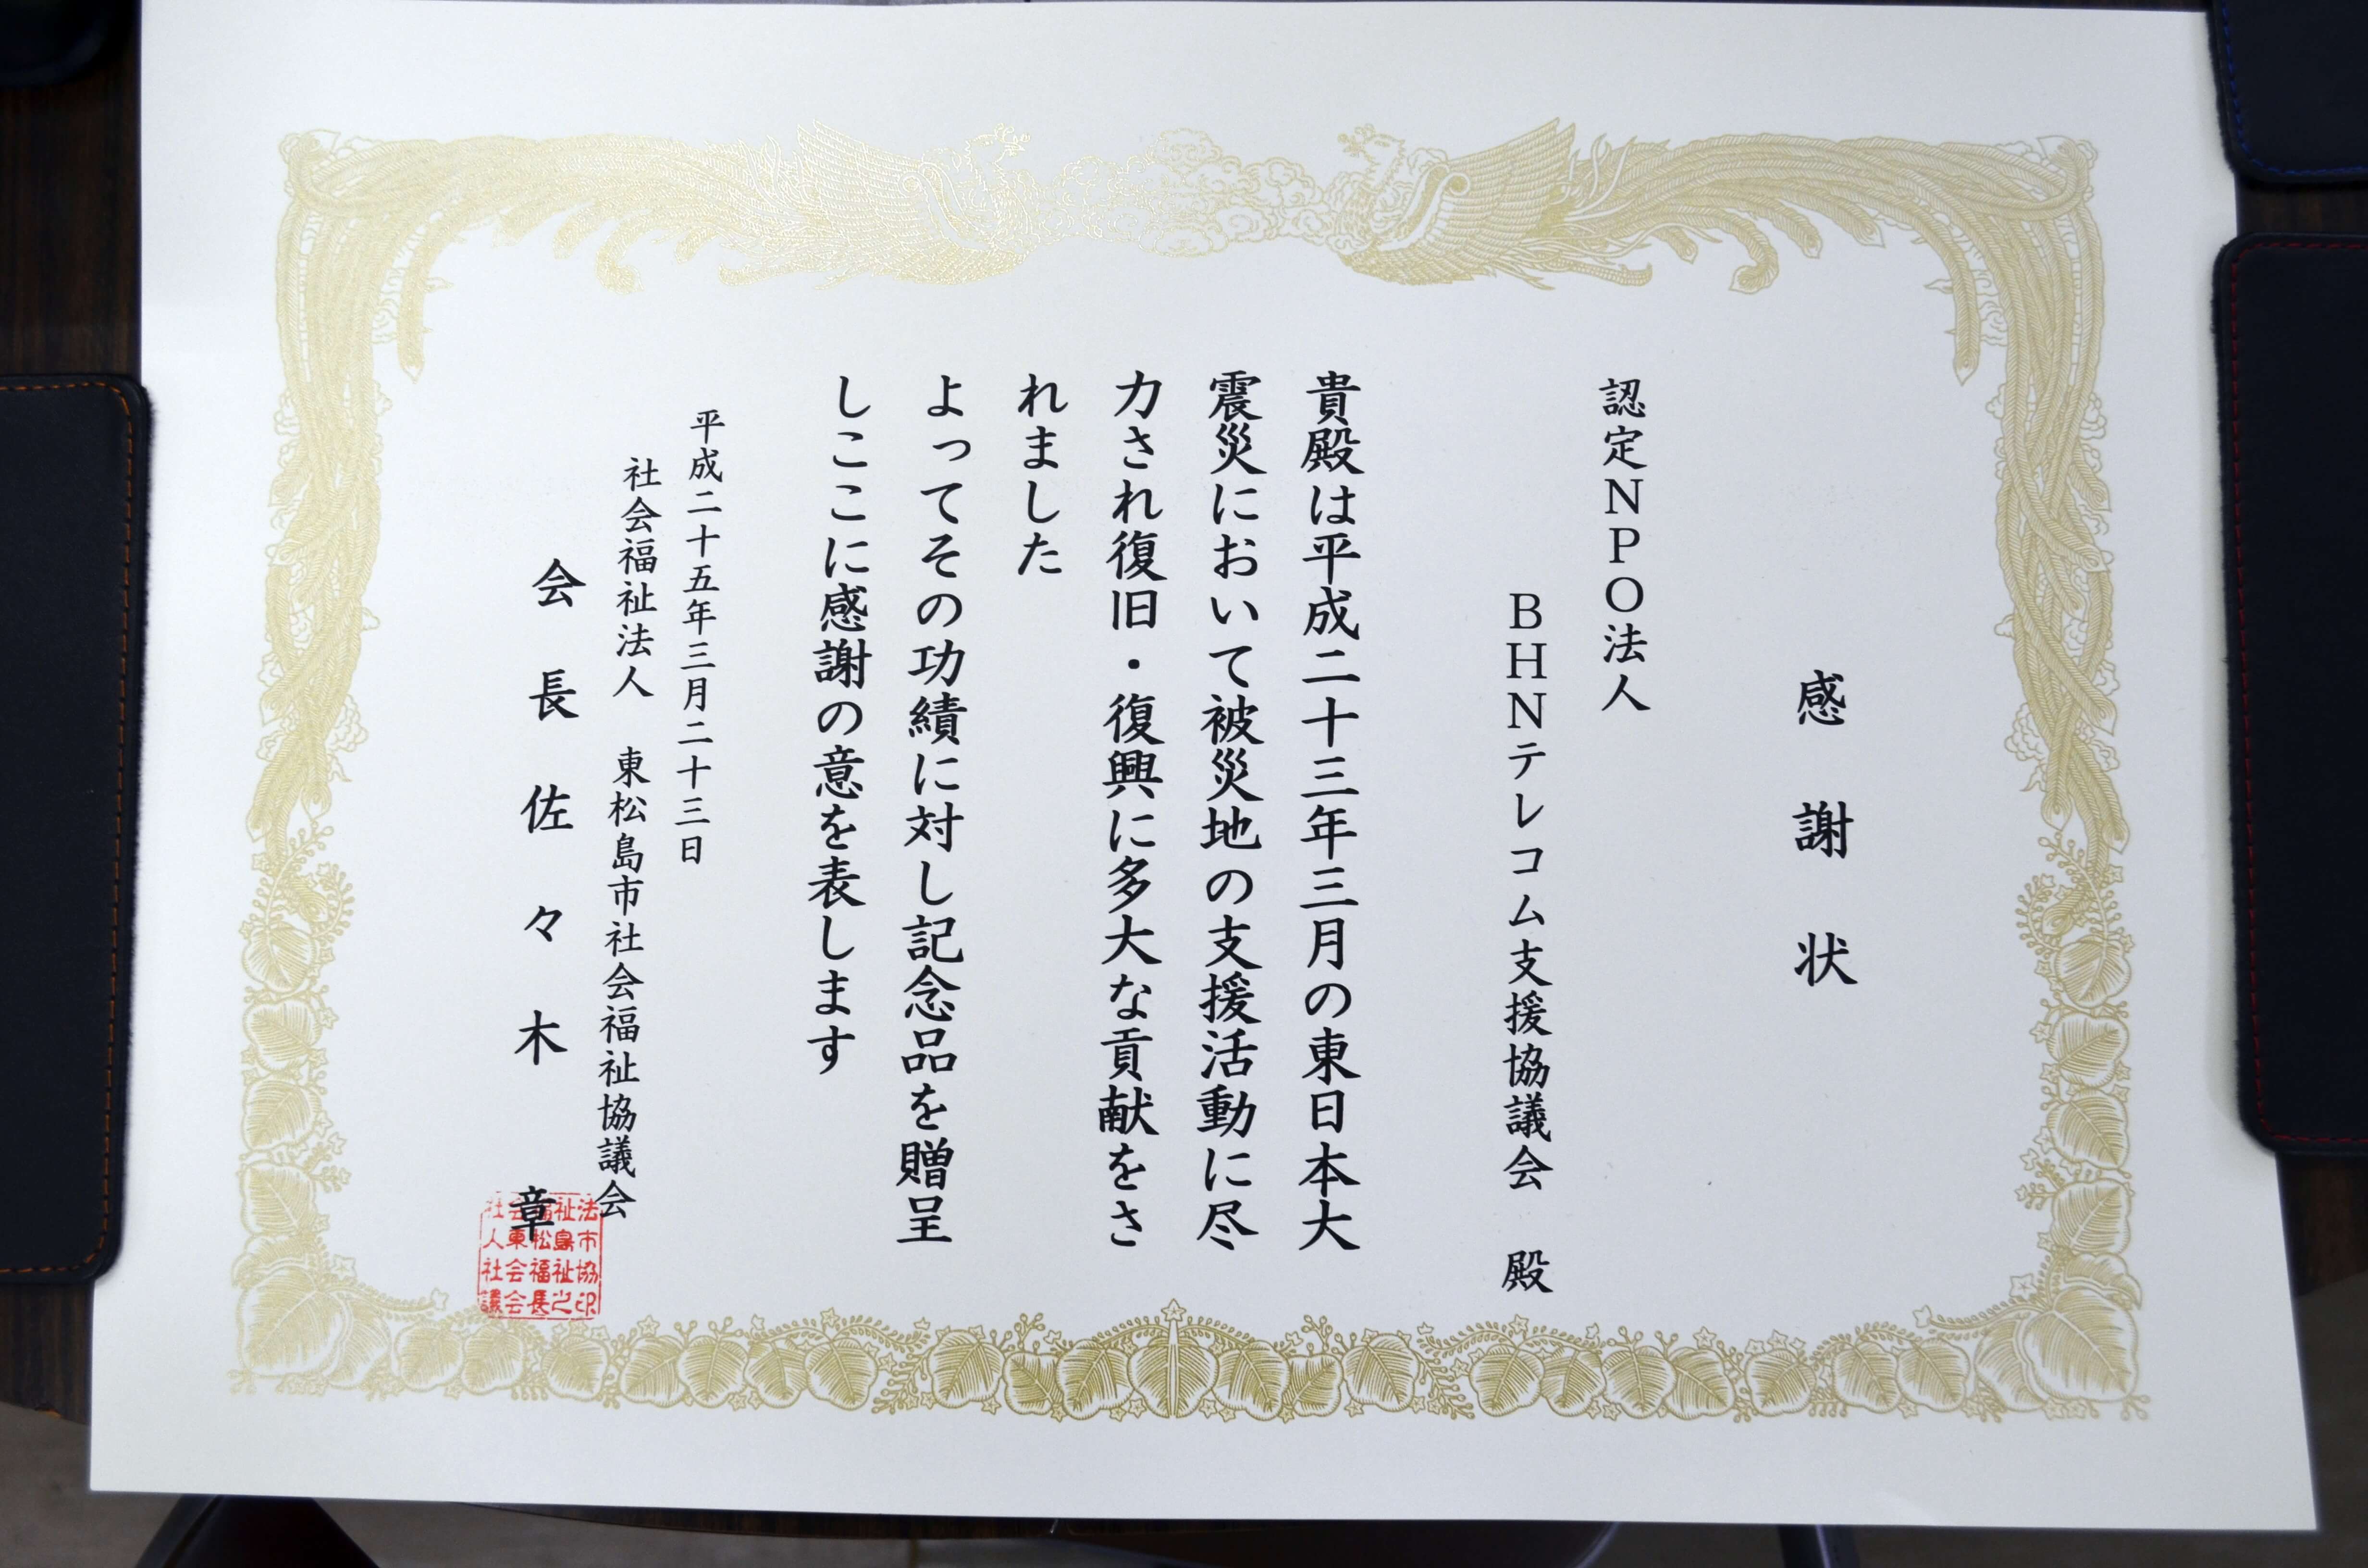 感謝状
認定NPO法人
BHNテレコム支援協議会 殿
貴殿は平成二十三年三月の東日本大
震災において被災地の支援活動に尽
力され復旧・復興に多大な貢献をさ
れました
よってその功績に対し記念品を贈呈
しここに感謝の意を表します
平成二十五年三月二十三日
社会福祉法人 東松島市社会福祉協議会
会長佐々木 章
法市協印
祉島祉之
福松福長
会東会会
社人社議